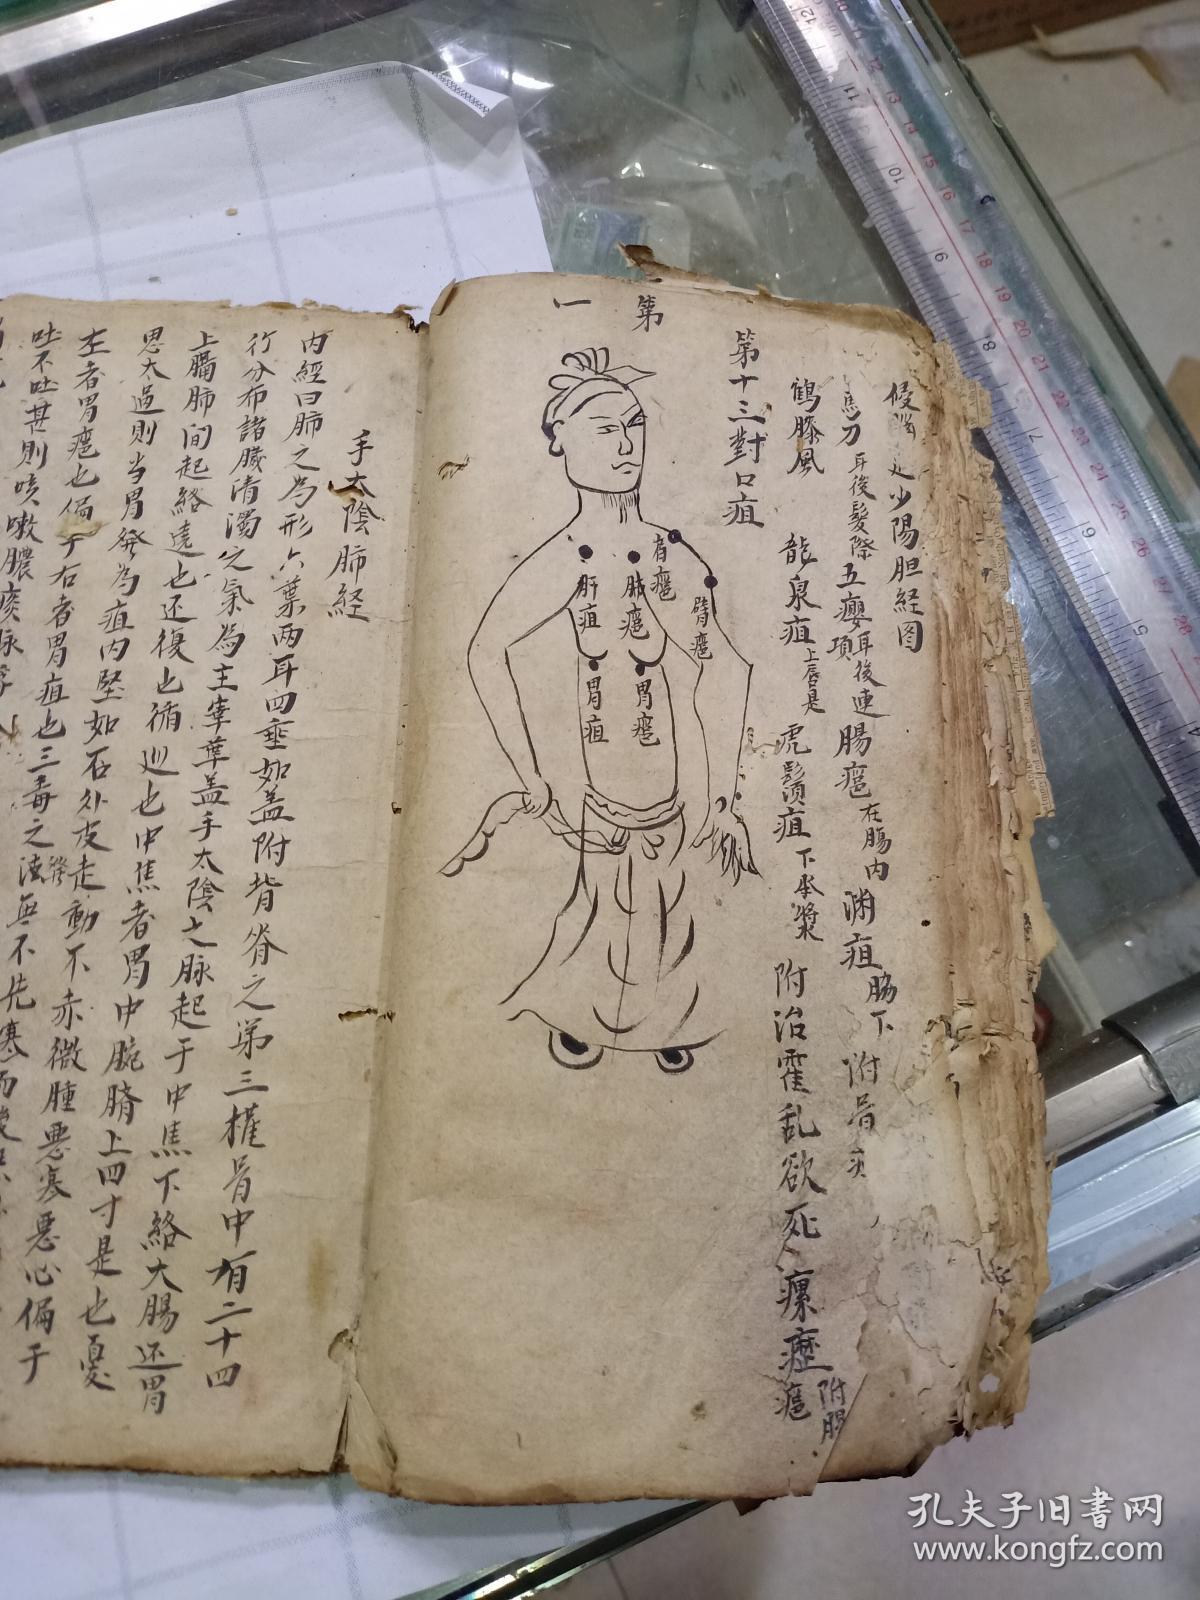 少陽胆経图
馬刀 耳後髮際 五癭 耳後連項 腸癰 在腸内 渊疽 脇下 附骨
鶴膝風 龍泉疽 上唇是 虎鬚疽 下承漿 附治霍乱欲死 瘰癧 附腸癰
第十三對口疽
第一
肩癰
臂癰
肺癰
肝疽
胃癰
胃疽
手太陰肺経
内經曰肺之為形六葉兩耳四垂如盖附背脊之第三椎骨中有二十四
行分布諸臟清濁之氣為主宰華盖手太陰之脉起于中焦下絡大腸还胃
上膈肺间起絡遶也还復也循巡也中焦者胃中腕臍上四寸是也憂
思太過則当胃發為疽内堅如石外皮走動不赤微腫悪寒悪心偏于
左者胃癰也偏于右者胃疽也三毒之發無不先寒而
吐不吐甚則咳嗽膿痰脉
孔夫子旧书网
www.kongfz.com